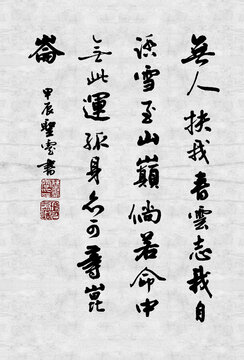 無人扶我青雲志我自
踏雪至山巔倘若命中
無此運孤身亦可尋崑
崙
甲辰聖雲書